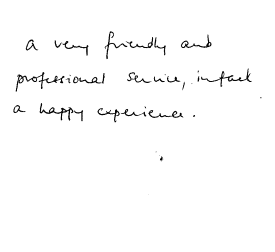 a very friendly and
professional service, infact
a happy experience.